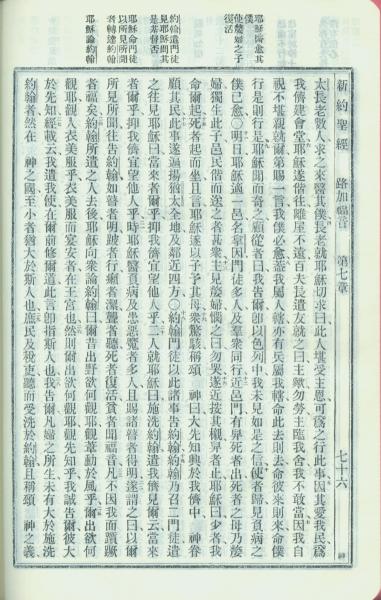 新約聖經 路加福音 第七章 七十六 神
太長老數人求之來醫其僕長老就耶穌切求曰此人堪受主恩可爲之行此事因其愛我民爲
我儕建會堂耶穌遂偕往離屋不遠百夫長遣友就之曰主歟勿勞主臨我舍我不敢當因我自
視不堪親就爾第賜一言我僕必愈蓋我屬人轄亦有兵屬我轄命此去則去命彼來則來命僕
行是則行是耶穌聞而奇之顧從者曰我告爾卽以色列中我未見如是之信使者歸見負病之
僕已愈○明日耶穌適一邑名拿因門徒多人及羣衆同行近邑門有舁死者出死者之母乃嫠
婦獨生此子邑民偕而送之者甚衆主見嫠婦憫之曰勿哭遂近按其櫬舁者止耶穌曰少者我
命爾起死者起而坐且言耶穌遂以子予其母衆驚駭稱頌 神曰大先知興於我儕中 神眷
顧其民此事遂遍揚猶太全地及鄰近四方○約翰門徒以此諸事告約翰約翰乃召二門徒遣
之往見耶穌曰當來者爾乎抑我儕宜望他人乎二人就耶穌曰施洗約翰遣我儕見爾云當來
者爾乎抑我儕宜望他人乎時耶穌醫負病及患惡鬼者多人且賜諸瞽者得明遂謂之曰以爾
所見所聞往告約翰如瞽者明跛者行癩者潔聾者聽死者復活貧者聞福音凡不因我而躓蹶
者福矣約翰所遣之人去後耶穌向衆論約翰曰爾昔出野欲何觀耶觀葦動於風乎爾出欲何
觀耶觀人衣美服乎衣美服而宴安者在王宮也然則爾出欲何觀耶觀先知乎我誠告爾彼大
於先知經載云我遣我使在爾前修爾道此言卽指斯人也我告爾凡婦之所生未有大於施洗
約翰者然在 神之國至小者猶大於斯人也庶民及稅吏聽而受洗於約翰且稱頌 神之義
耶穌醫愈其
僕
使嫠婦之子
復活
約翰遣門徒
見耶穌問其
是基督否
耶穌命門徒
以所見所聞
者轉達約翰
耶穌論約翰